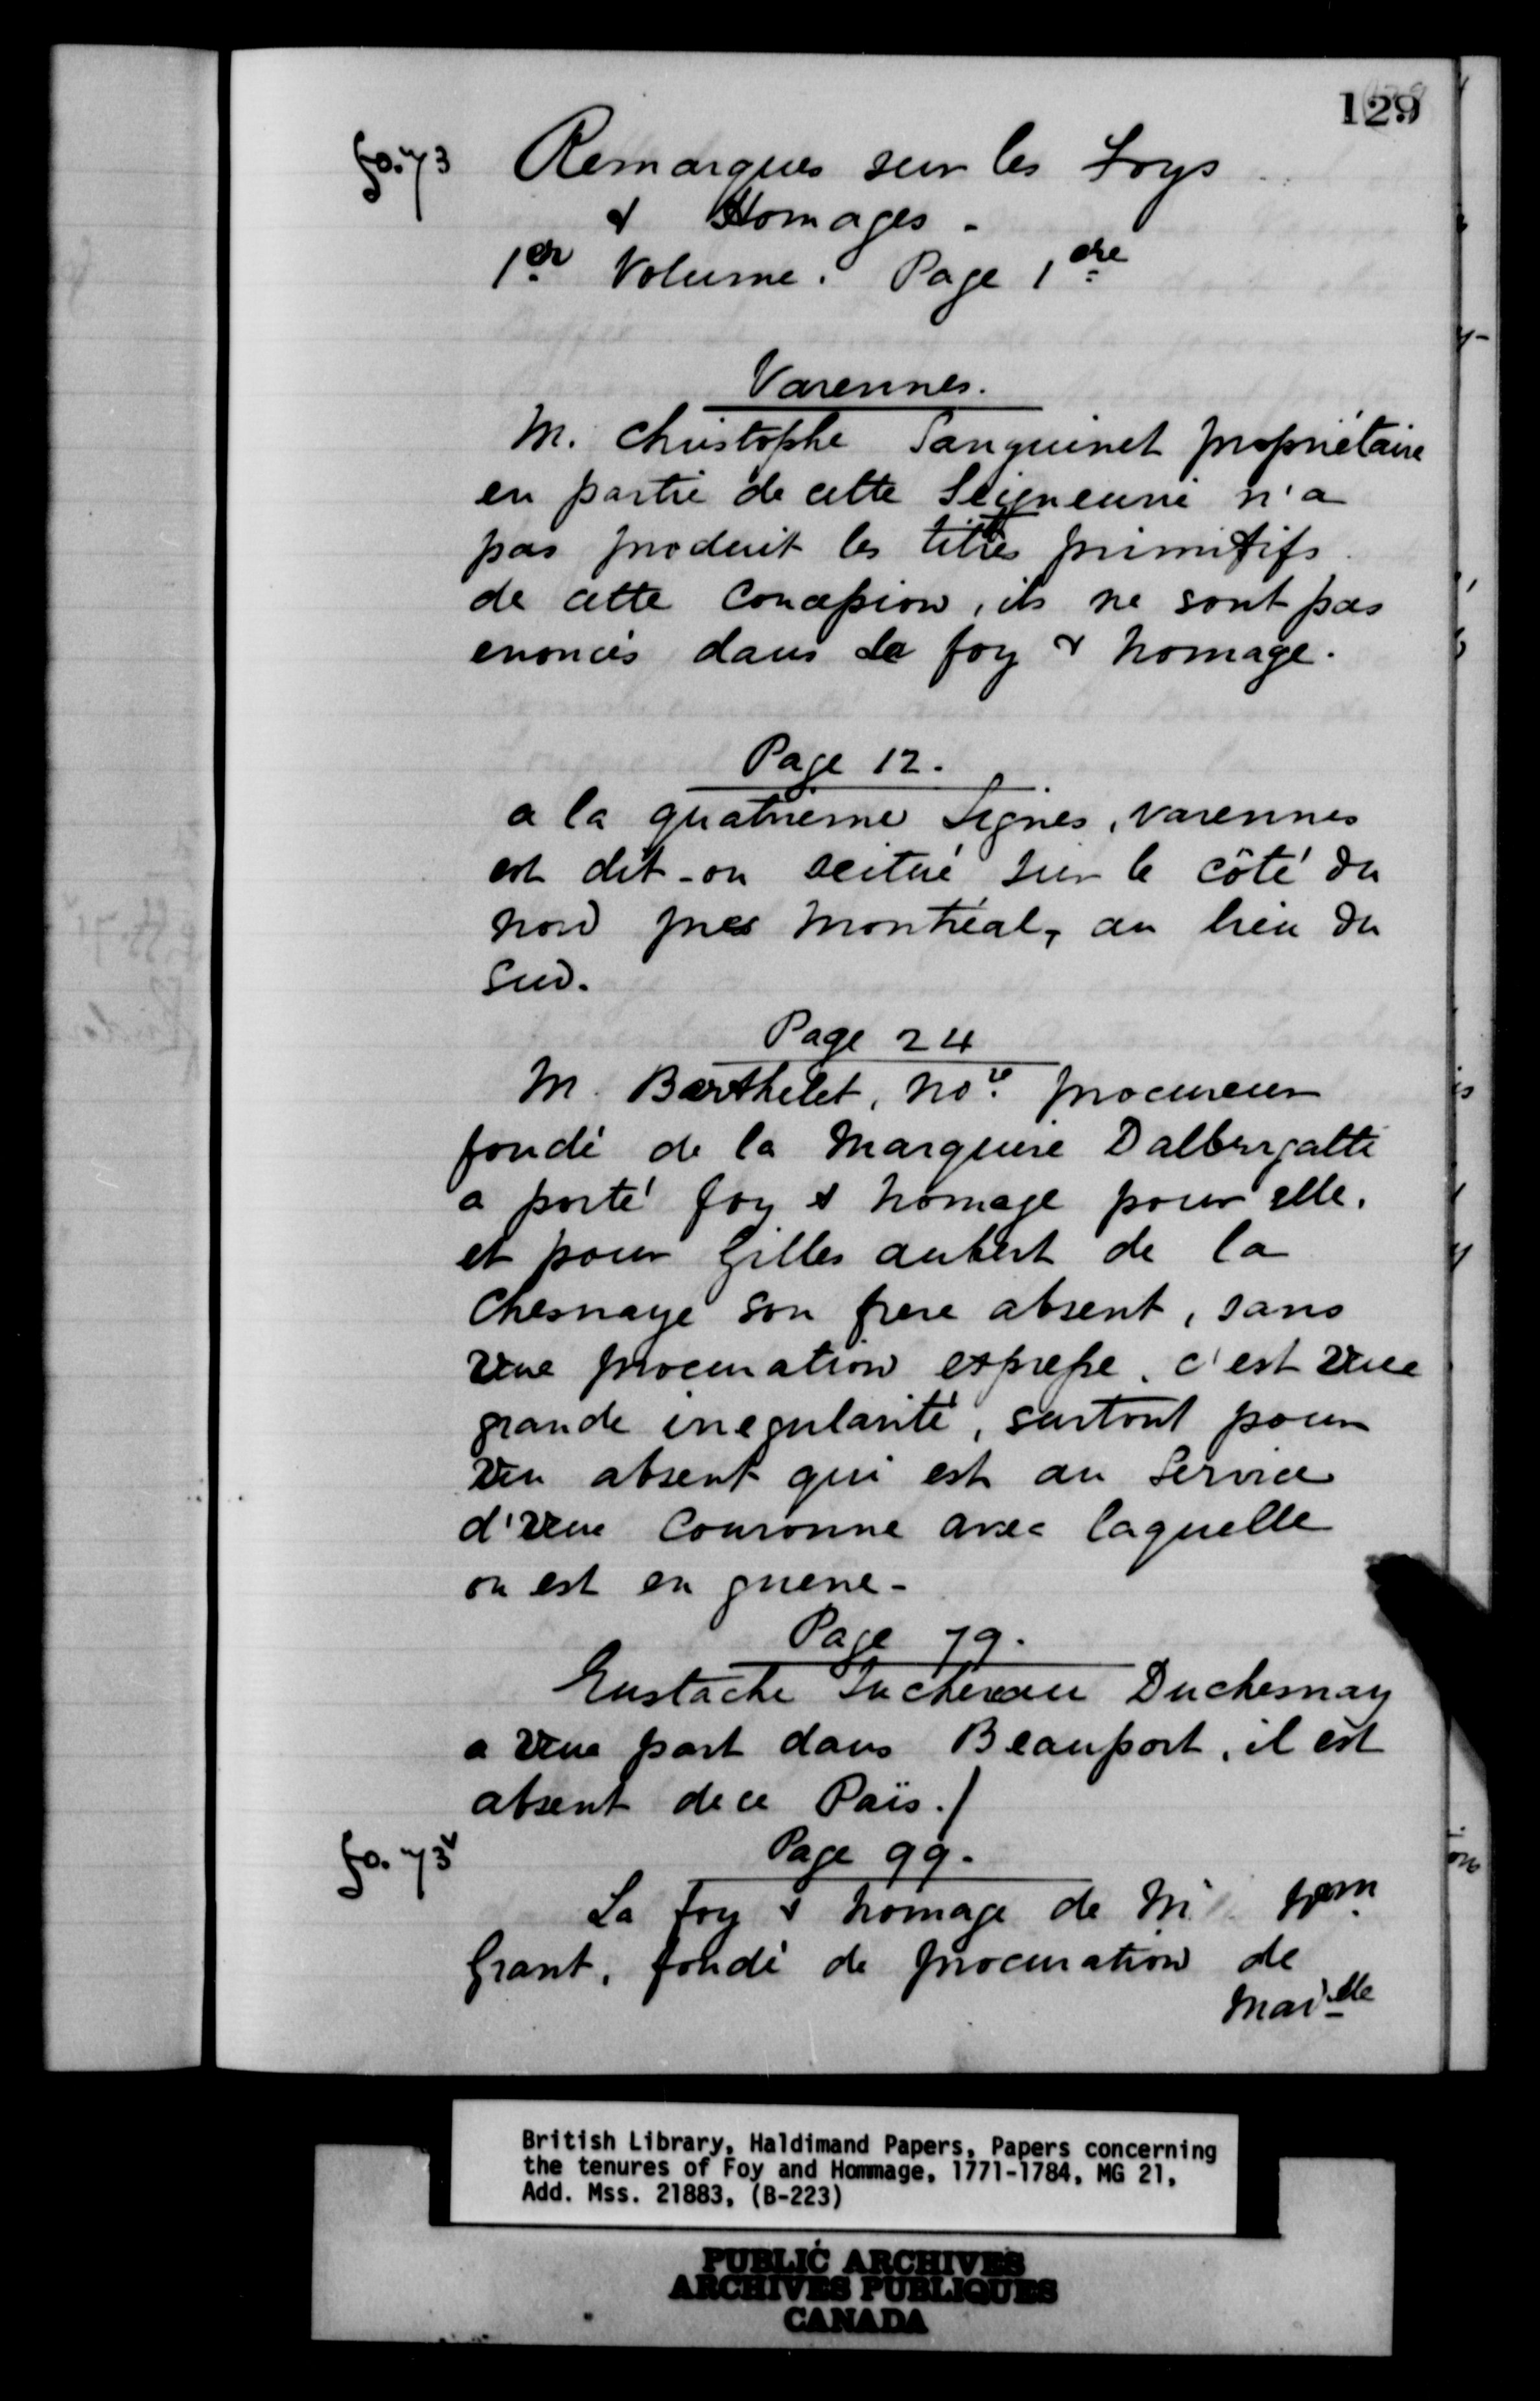 129
fo. 73 Remarques sur les Foys
& Homages -
1er Volume. Page 1ere
Varennes.
M. Christophe Sanguinet propriétaire
en partie de cette Seigneurie n'a
pas produit les titres primitifs
de cette Concession, ils ne sont pas
enoncés dans la foy & homage.
Page 12.
a la quatrieme Lignes, Varennes
est dit-on scitué sur le côté du
nord pres Montréal, au lieu du
Sud.
Page 24
M. Berthelet, nore procureur
fondé de la Marquise Dalbergatti
a porté foy & homage pour elle,
et pour Gilles aubert de la
Chesnaye son frere absent, sans
Une procuration expresse. c'est Une
grande irregularité, surtout pour
Un absent qui est au Service
d'Une Couronne avec laquelle
on est en guerre -
Page 79.
Eustache Juchereau Duchesnay
a Une part dans Beauport, il est
absent de ce Païs./
fo. 73v Page 99.
La foy & homage de M. Wm
Grant, fondé de procuration de
Madlle
British Library, Haldimand Papers, Papers concerning
the tenures of Foy and Hommage, 1771-1784, MG 21,
Add. Mss. 21883, (B-223)
PUBLIC ARCHIVES
ARCHIVES PUBLIQUES
CANADA